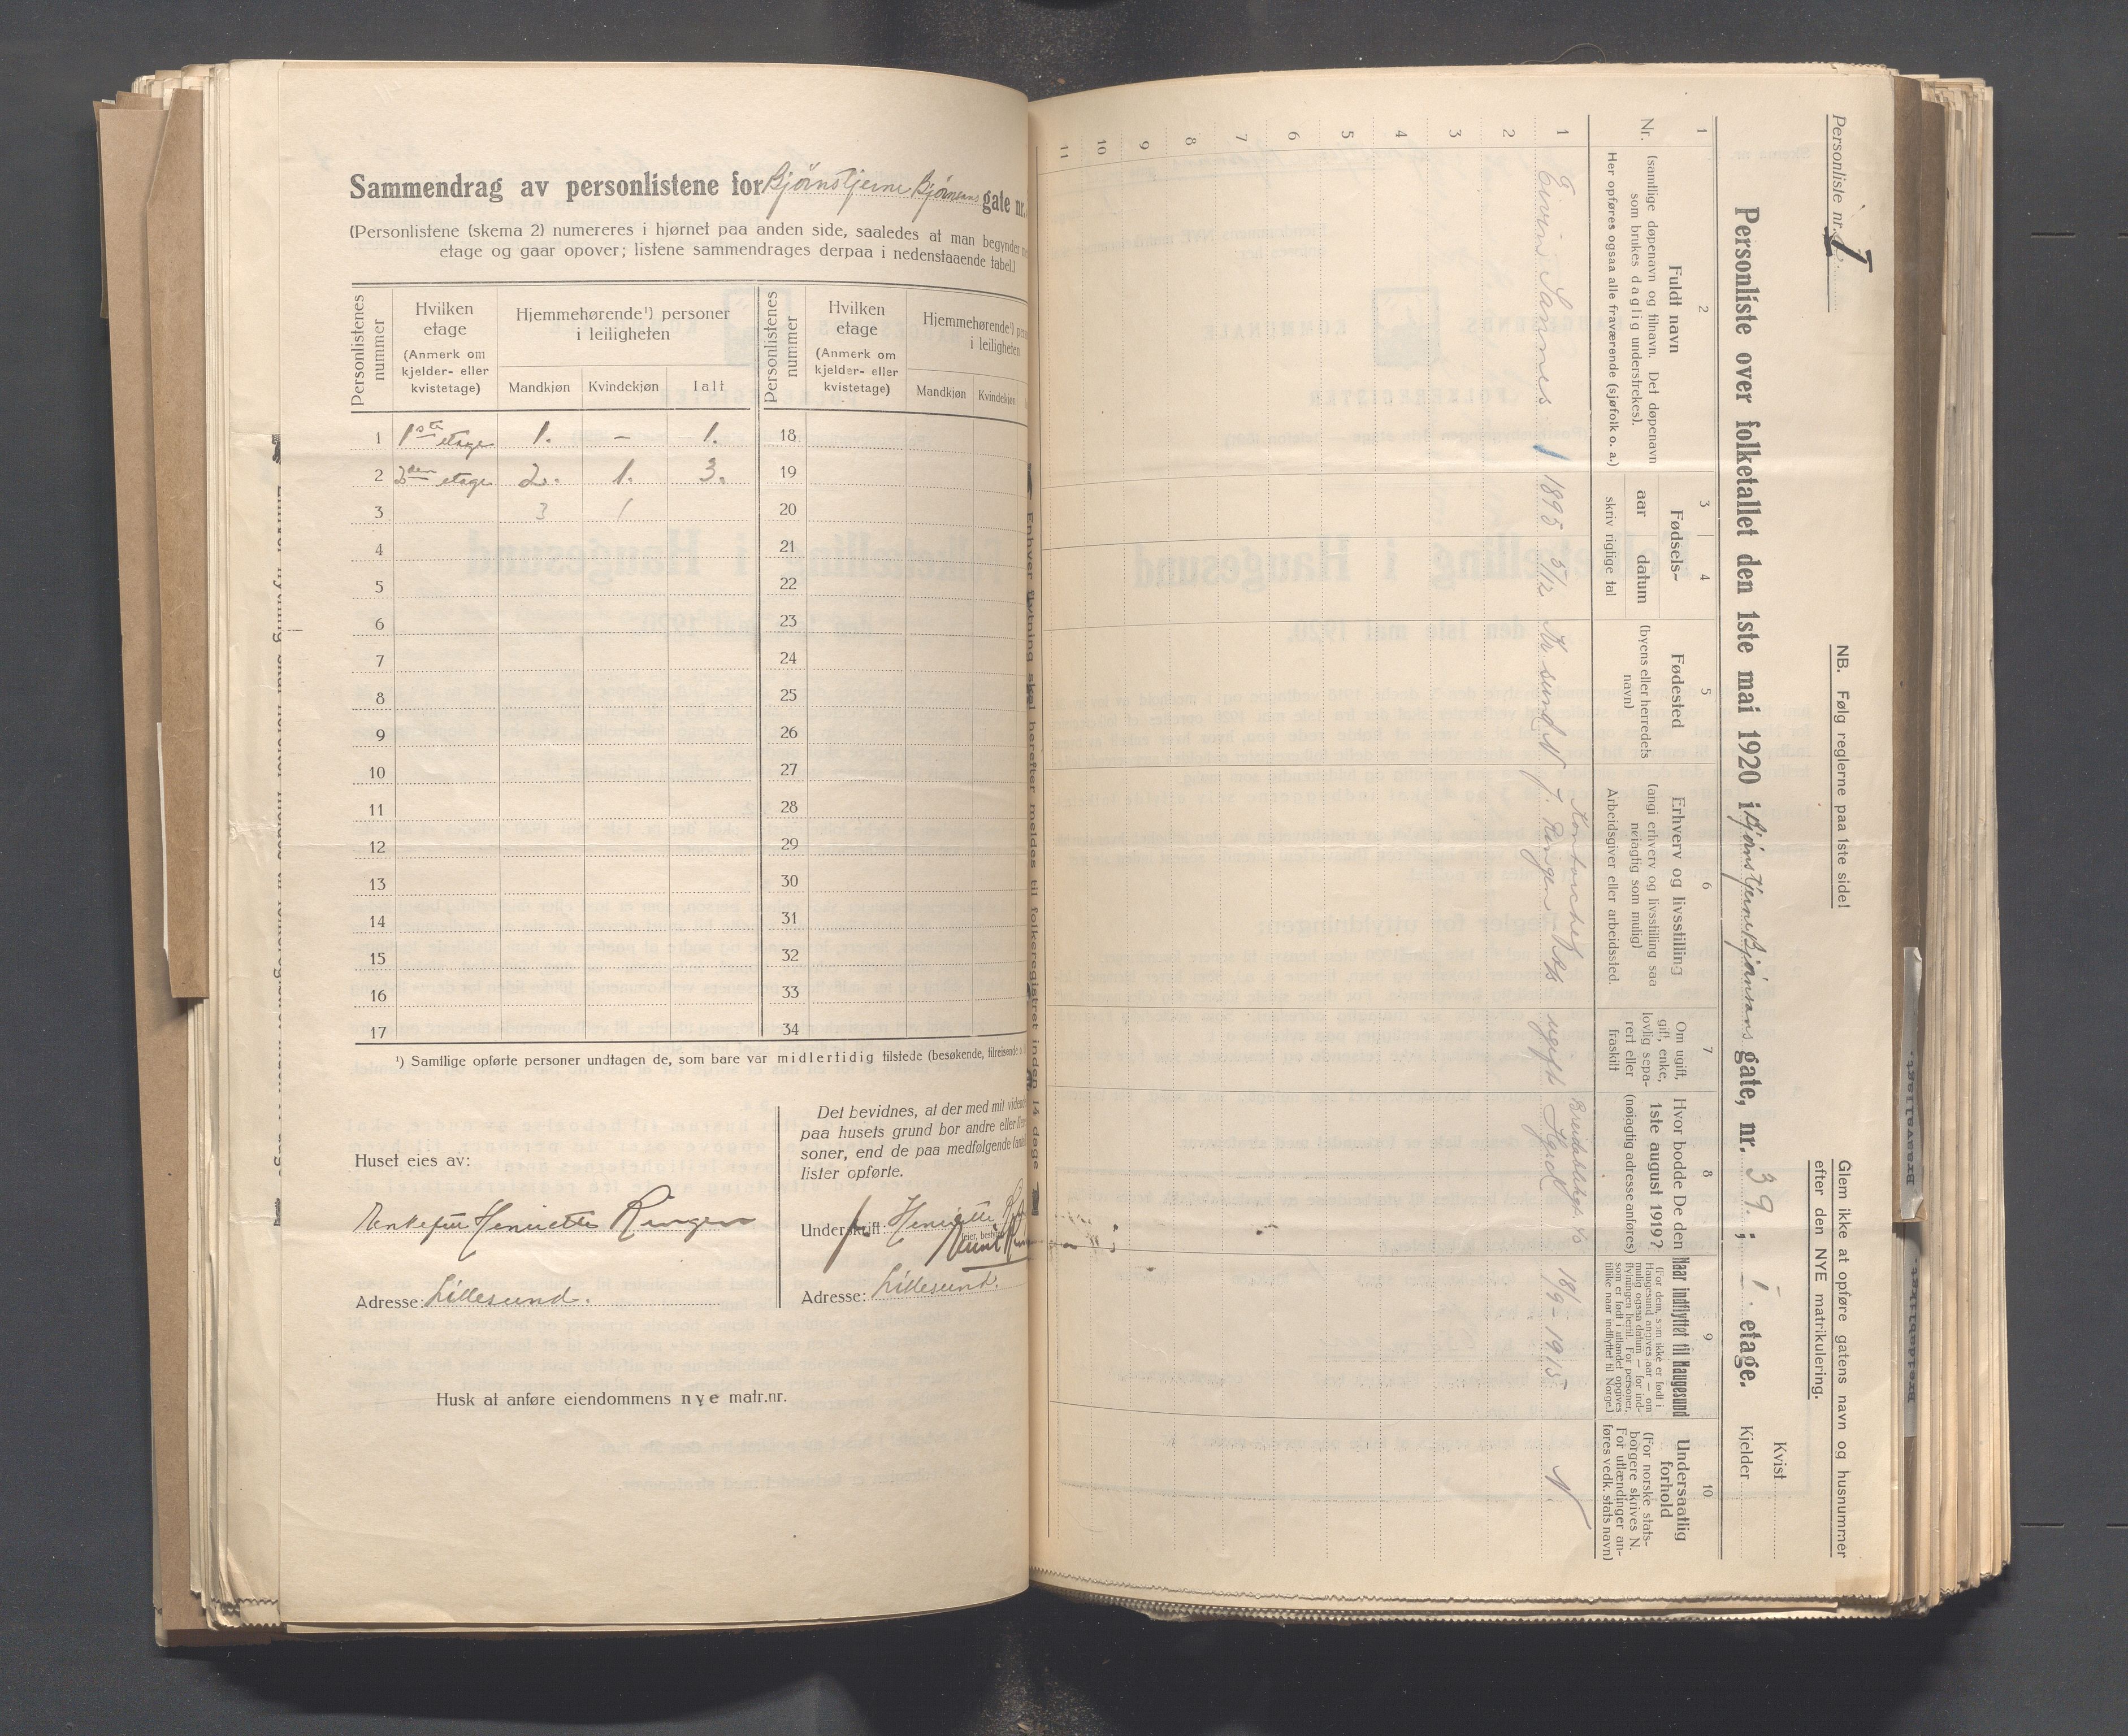 Sammendrag av personlistene for Bjørnstjerne Bjørnsons gate nr.
(Personlistene (skema 2) numereres i hjørnet paa anden side, saaledes at man begynder
etage og gaar opover; listene sammendrages derpaa i nedenstaaende tabel.)
Personlistenes nummer
Hvilken etage
(Anmerk om kjelder- eller kvistetage)
Hjemmehørende¹) personer i leiligheten
Mandkjøn Kvindekjøn Ialt
Personlistenes nummer
Hvilken etage
(Anmerk om kjelder- eller kvistetage)
Hjemmehørende¹)
i leiligheten
Mandkjøn Kvindekjøn
1 1ste etage 1. – 1. 18
2 2den etage 2. 1. 3. 19
3 3 1 20
4 21
5 22
6 23
7 24
8 25
9 26
10 27
11 28
12 29
13 30
14 31
15 32
16 33
17 34
¹) Samtlige opførte personer undtagen de, som bare var midlertidig tilstede (besøkende, tilreisende
Huset eies av:
Enkefru Henriette Ringen
Adresse: Lillesund.
Det bevidnes, at der med mit
paa husets grund bor andre eller
soner, end de paa medfølgende
lister opførte.
Underskrift f. Henriette
Adresse: Lillesund.
Husk at anføre eiendommens nye matr.nr.
Enhver flytning skal herefter meldes til folkeregistret inden 14 dage
Personliste nr. I
NB. Følg reglerne paa 1ste side!
Glem ikke at opføre gatens navn og husnummer
efter den NYE matrikulering.
Personliste over folketallet den 1ste mai 1920 i Bjørnstjerne Bjørnsons gate, nr. 39. ; 1. etage.
Kvist
Kjelder
1 2 3 4 5 6 7 8 9 10
Nr.
Fuldt navn
(samtlige døpenavn og tilnavn. Det døpenavn
som brukes daglig understrekes).
Her opføres ogsaa alle fraværende (sjøfolk o. a.)
Fødsels-
aar datum
skriv rigtige tal
Fødested
(byens eller herredets
navn)
Erhverv og livsstilling
(angi erhverv og livsstilling saa
nøiagtig som mulig)
Arbeidsgiver eller arbeidssted.
Om ugift,
gift, enke,
lovlig sepa-
rert eller
fraskilt
Hvor bodde De den
1ste august 1919?
(nøiagtig adresse anføres)
Naar indflyttet til Haugesund
(For dem, som ikke er født i
Haugesund angives aar — om
mulig ogsaa datum — for ind-
flytningen hertil. For personer,
som er født i utlandet opgives
tillike naar indflyttet til Norge.)
Undersaatlig
forhold
(For norske stats-
borgere skrives N.
For utlændinger an-
føres vedk. stats navn)
Kontorchef Breidablikgt
1 Eivin Sannes 1 1895 5/12 Kr.sund N J. Ringen ugift Hgsd 18/9-1915 N.
2
3
4
5
6
7
8
9
10
11
Breidablikgt.
Bråvallagt.